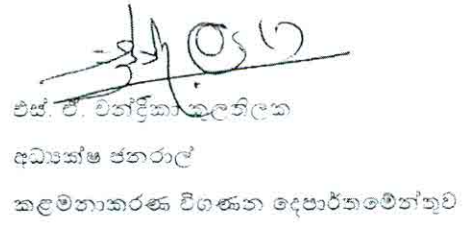 එස්. ඒ. චන්ද්‍රිකා කුලතිලක
අධ්‍යක්ෂ ජනරාල්
කළමනාකරණ විගණන දෙපාර්තමේන්තුව